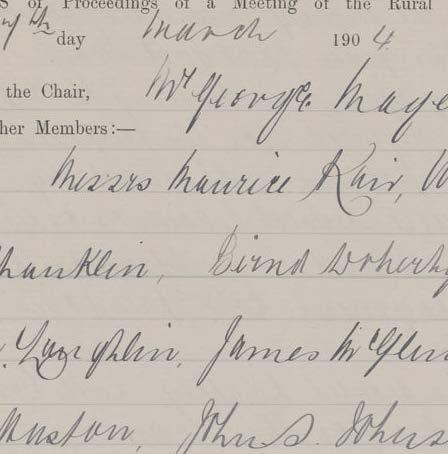 S of Proceedings of a Meeting of the Rural
day March 1904
the Chair, Mr George
her Members:—
Messrs Maurice Kair, W
hanklin, Bernd Doherty
Loughlin, James McGlin
Huston, John S. Johns